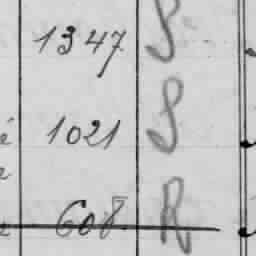 1347 S
1021 S
608 R